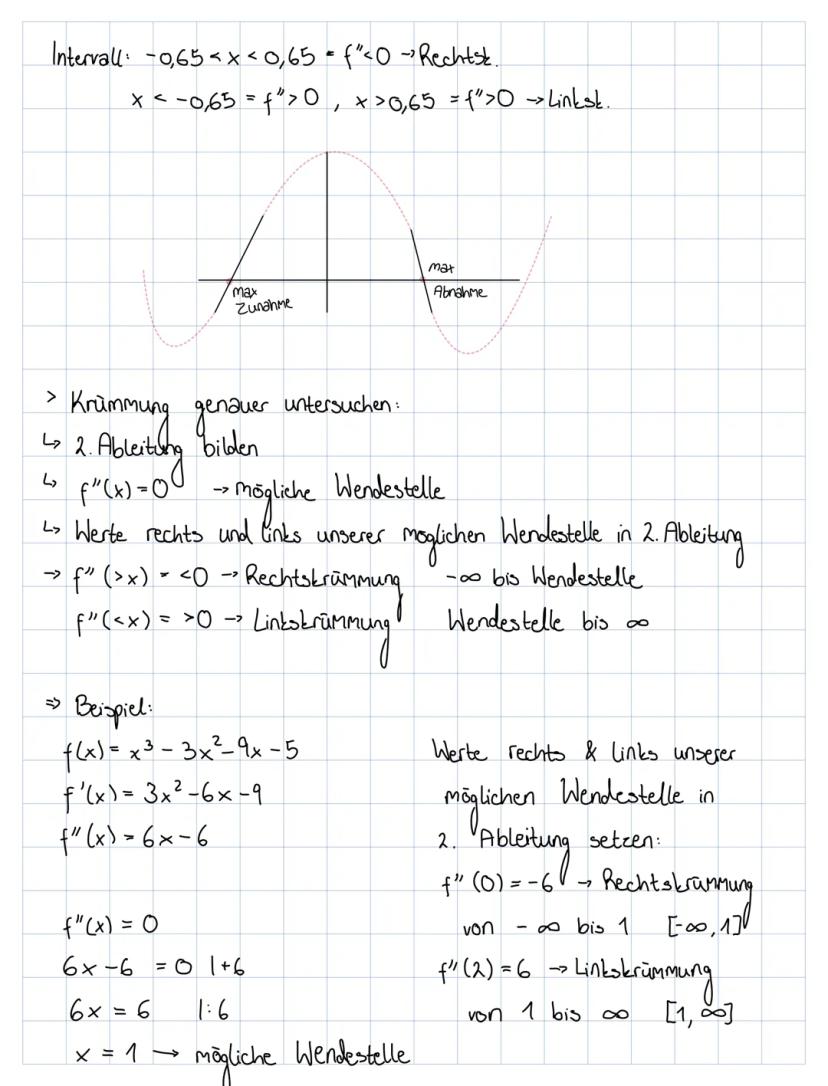 Intervall: -0,65 < x < 0,65 = f"<0 → Rechtsk.
x < -0,65 = f">0 , x >0,65 = f">0 → Linksk.
max
Zunahme
max
Abnahme
> Krümmung genauer untersuchen:
↳ 2. Ableitung bilden
↳ f"(x) = 0 → mögliche Wendestelle
↳ Werte rechts und links unserer moglichen Wendestelle in 2. Ableitung
→ f" (>x) = <0 → Rechtskrümmung -∞ bis Wendestelle
f" (<x) = >0 → Linkskrümmung Wendestelle bis ∞
⇒ Beispiel:
f(x) = x³ - 3x² - 9x - 5
f'(x) = 3x² - 6x - 9
f"(x) = 6x - 6
f"(x) = 0
6x - 6 = 0 |+6
6x = 6 |:6
x = 1 → mögliche Wendestelle
Werte rechts & links unserer
möglichen Wendestelle in
2. Ableitung setzen:
f" (0) = -6 → Rechtskrümmung
von - ∞ bis 1 [-∞, 1]
f" (2) = 6 → Linkskrümmung
von 1 bis ∞ [1, ∞]